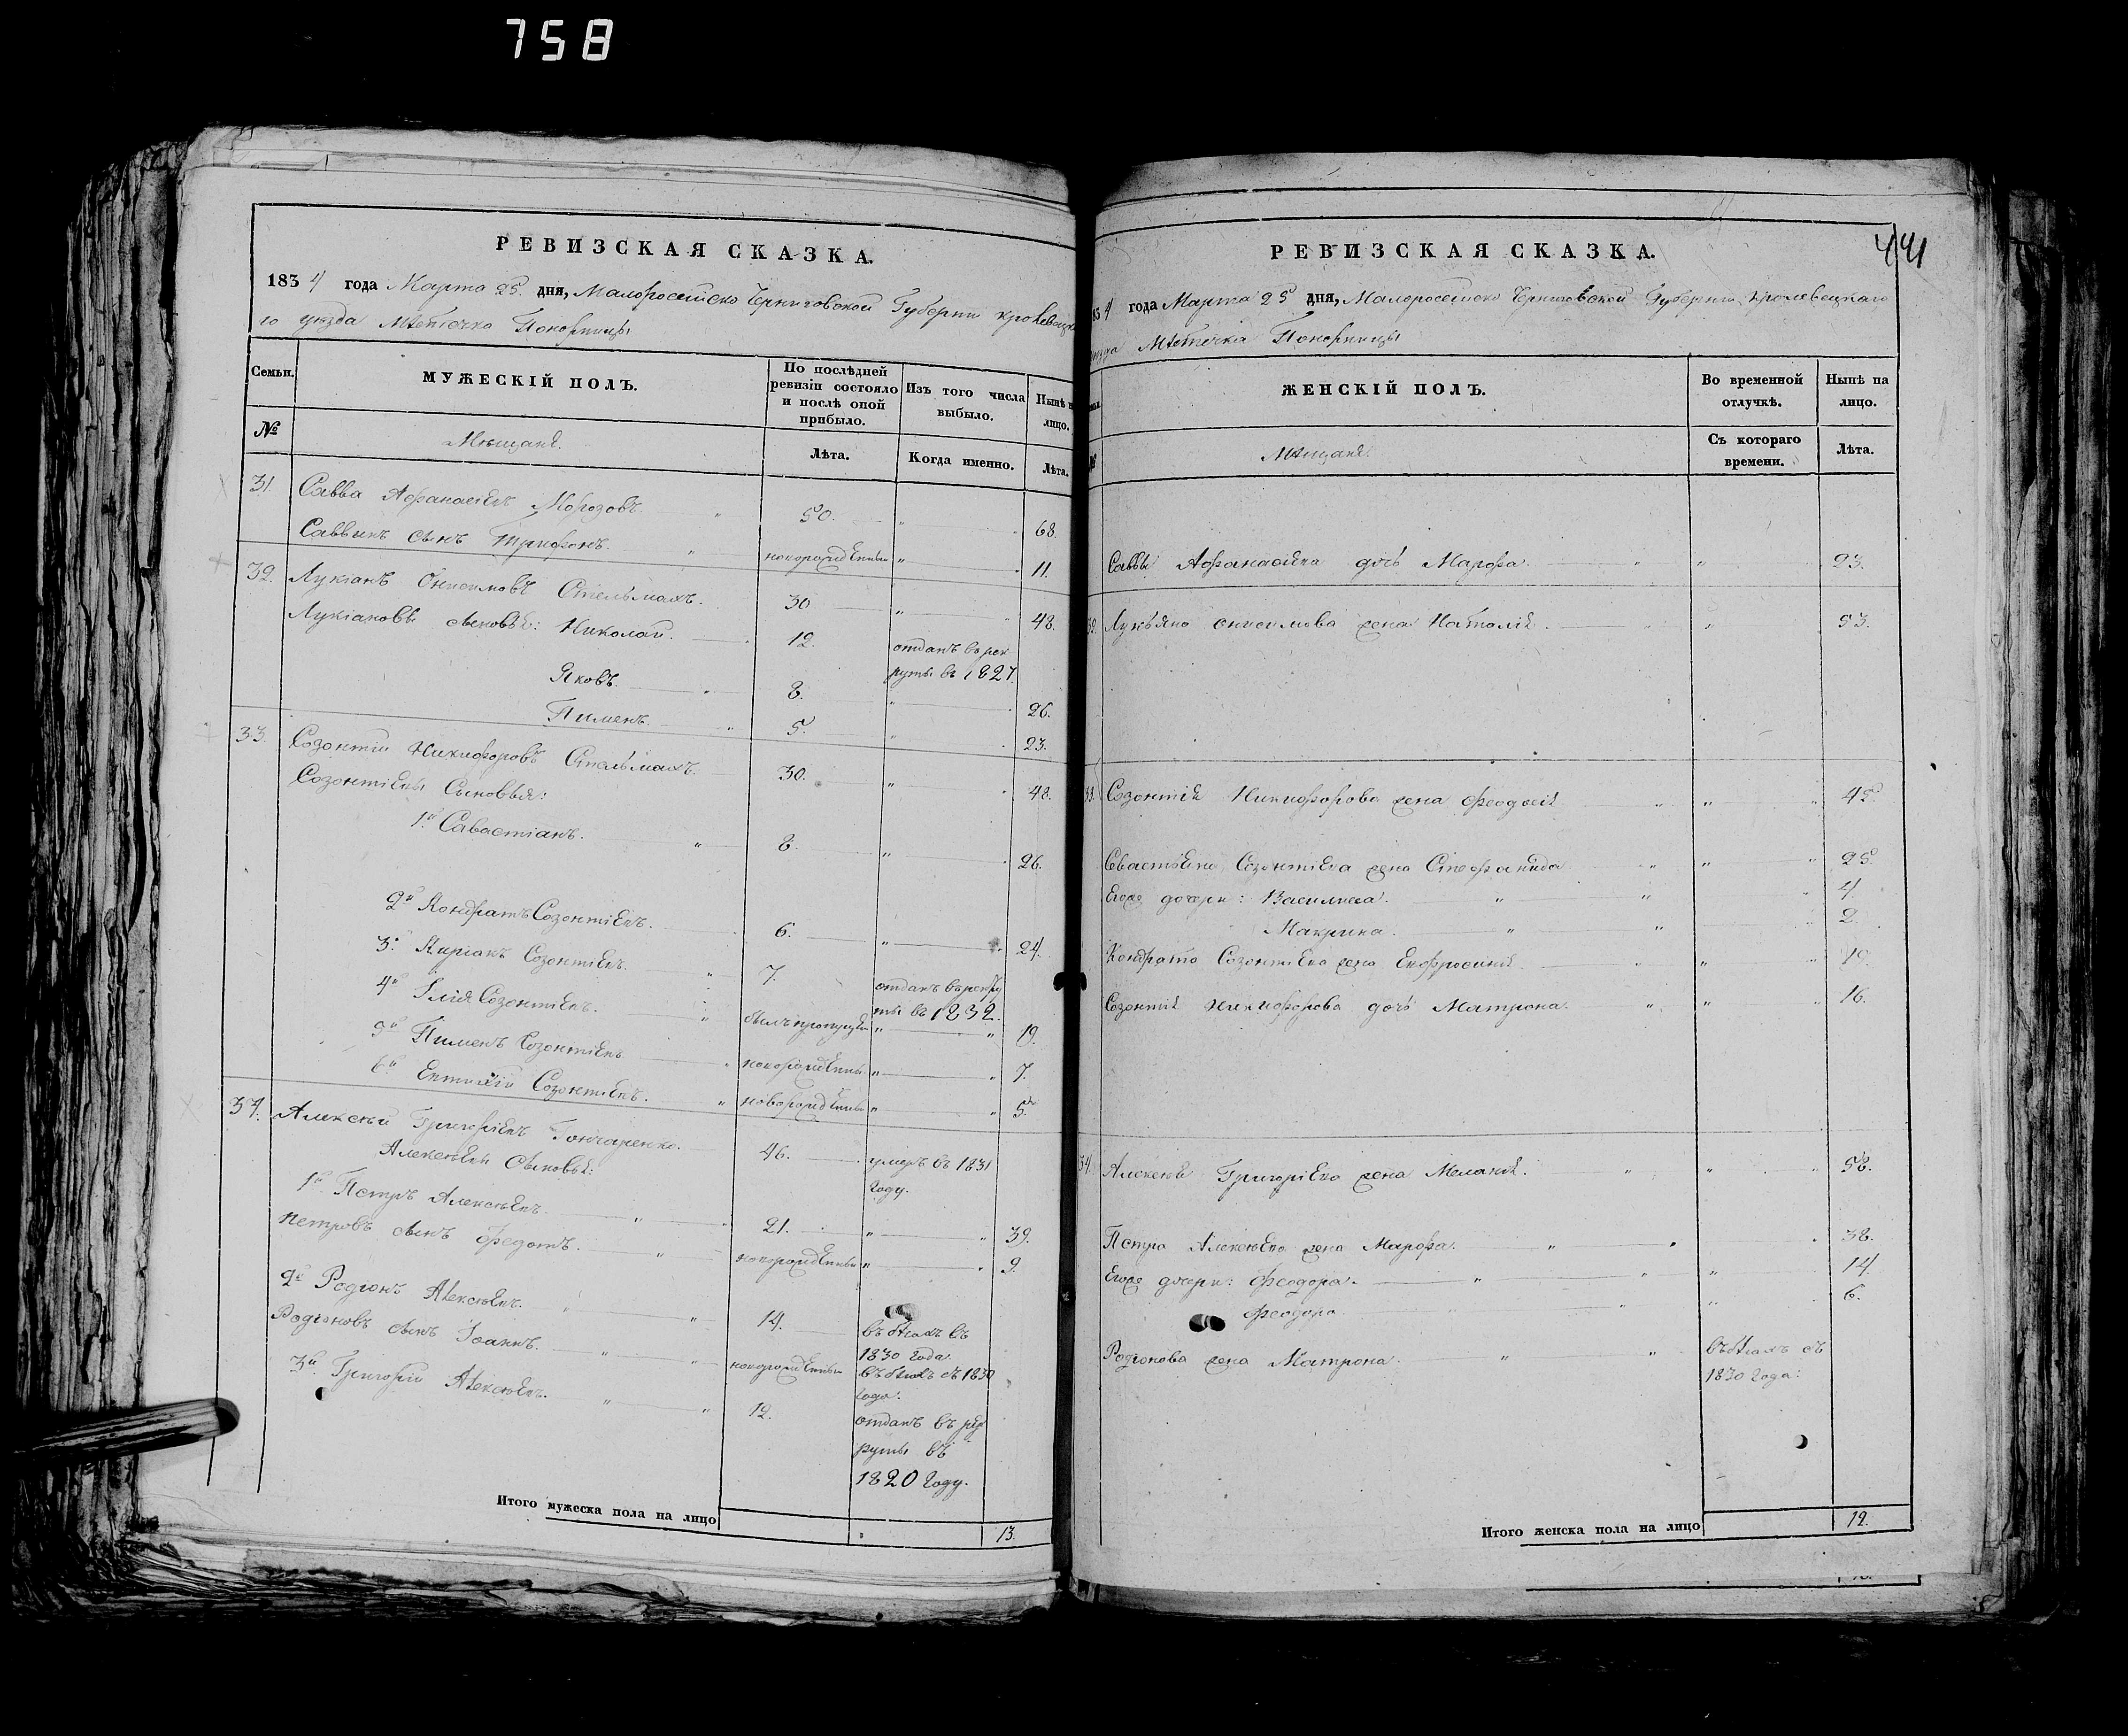 758
РЕВИЗСКАЯ СКАЗКА.
1834 года Марта 25 дня, Малоросейско Черниговской Губернии Кролевецка
го уезда Местечка Понорницы
Семьи.
МУЖЕСКІЙ ПОЛЪ.
По послѣдней ревизіи состояло и послѣ оной прибыло.
Изъ того числа выбыло.
Нынѣ на лицо.
№
Мещане.
Лѣта.
Когда именно.
Лѣта.
31. Савва Афанасіевъ Морозовъ 50. 68.
Саввинъ сынъ Трифонъ. новорожденный 11.
32. Лукіанъ Онисимовъ Стельмахъ. 30 48.
Лукіановы сыновья: Николай. 12. отданъ в рек
руты въ 1827.
Яковъ. 8. 26.
Пименъ. 5. 23.
33. Созонтій Никифоровъ Стельмахъ. 30. 48.
Созонтіевы Сыновья:
1й Савастіанъ. 8. 26.
2й Кондратъ Созонтіевъ. 6. 24.
3й Киріакъ Созонтіевъ. 7. отданъ в рекру
ты въ 1832.
4й Ілія Созонтіевъ. былъ пропущенъ 19.
5й Пименъ Созонтіевъ новорожденный 7.
6й Евтихій Созонтіевъ. новорожденный 5.
34. Алексей Григоріевъ Гончаренко. 46. умеръ въ 1831
году.
Алексеевы сыновья:
1й Петръ Алексеевъ 21. 39.
Петровъ сынъ Федотъ. новорожденный 9.
2й Родіонъ Алексеевъ. 14. въ бегахъ въ
1830 года.
Родіоновъ сынъ Іоаннъ. новорожденный въ бегахъ съ 1830
года.
3й Григорій Алексеевъ. 12. отданъ въ рек
руты въ
1820 году.
Итого мужеска пола на лицо 13.
441
РЕВИЗСКАЯ СКАЗКА.
834 года Марта 25 дня, Малоросейско Черниговской Губерніи Кролевецкаго
уезда Местечка Понорницы
ЖЕНСКІЙ ПОЛЪ.
Во временной отлучкѣ.
Нынѣ на лицо.
№
Мещане.
Съ котораго времени.
Лѣта.
Саввы Афанасіева дочь Марфа. 23.
32. Лукьяна Онисимова жена Наталія. 53.
33. Созонтія Никифорова жена Феодосія 45.
Свастіяна Созонтіева жена Стефанида 25.
Егоже дочери: Василиса. 4.
Макрина. 2.
Кондрата Созонтіева жена Евфросинія 19.
Созонтія Никифорова дочь Матрона. 16.
34. Алексея Григоріева жена Меланія. 58.
Петра Алексеева жена Марфа. 38.
Егоже дочери: Феодора. 14.
Феодора 6.
Родіонова жена Матрона. въ бегахъ съ
1830 года.
Итого женска пола на лицо 12.